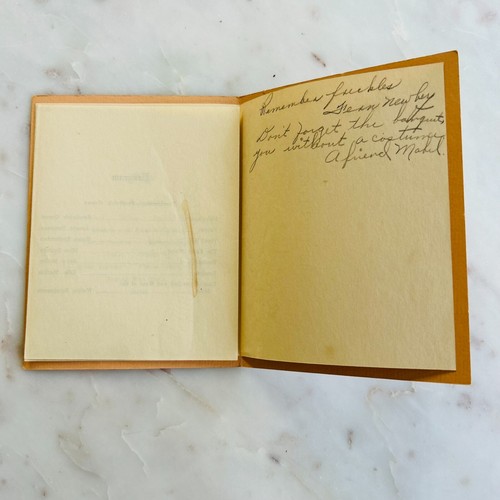 Remember freckles
Jean Newby
Don't forget the banquet,
you without a costume
A friend, Mabel.